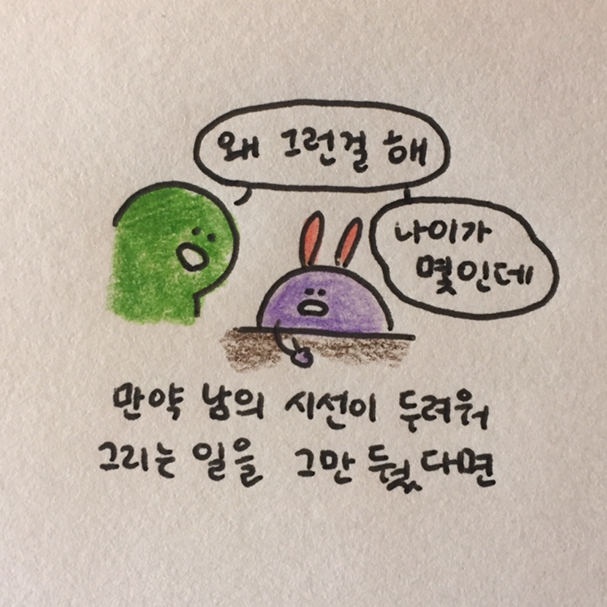 왜 그런걸 해
나이가
몇인데
만약 남의 시선이 두려워
그리는 일을 그만 뒀다면